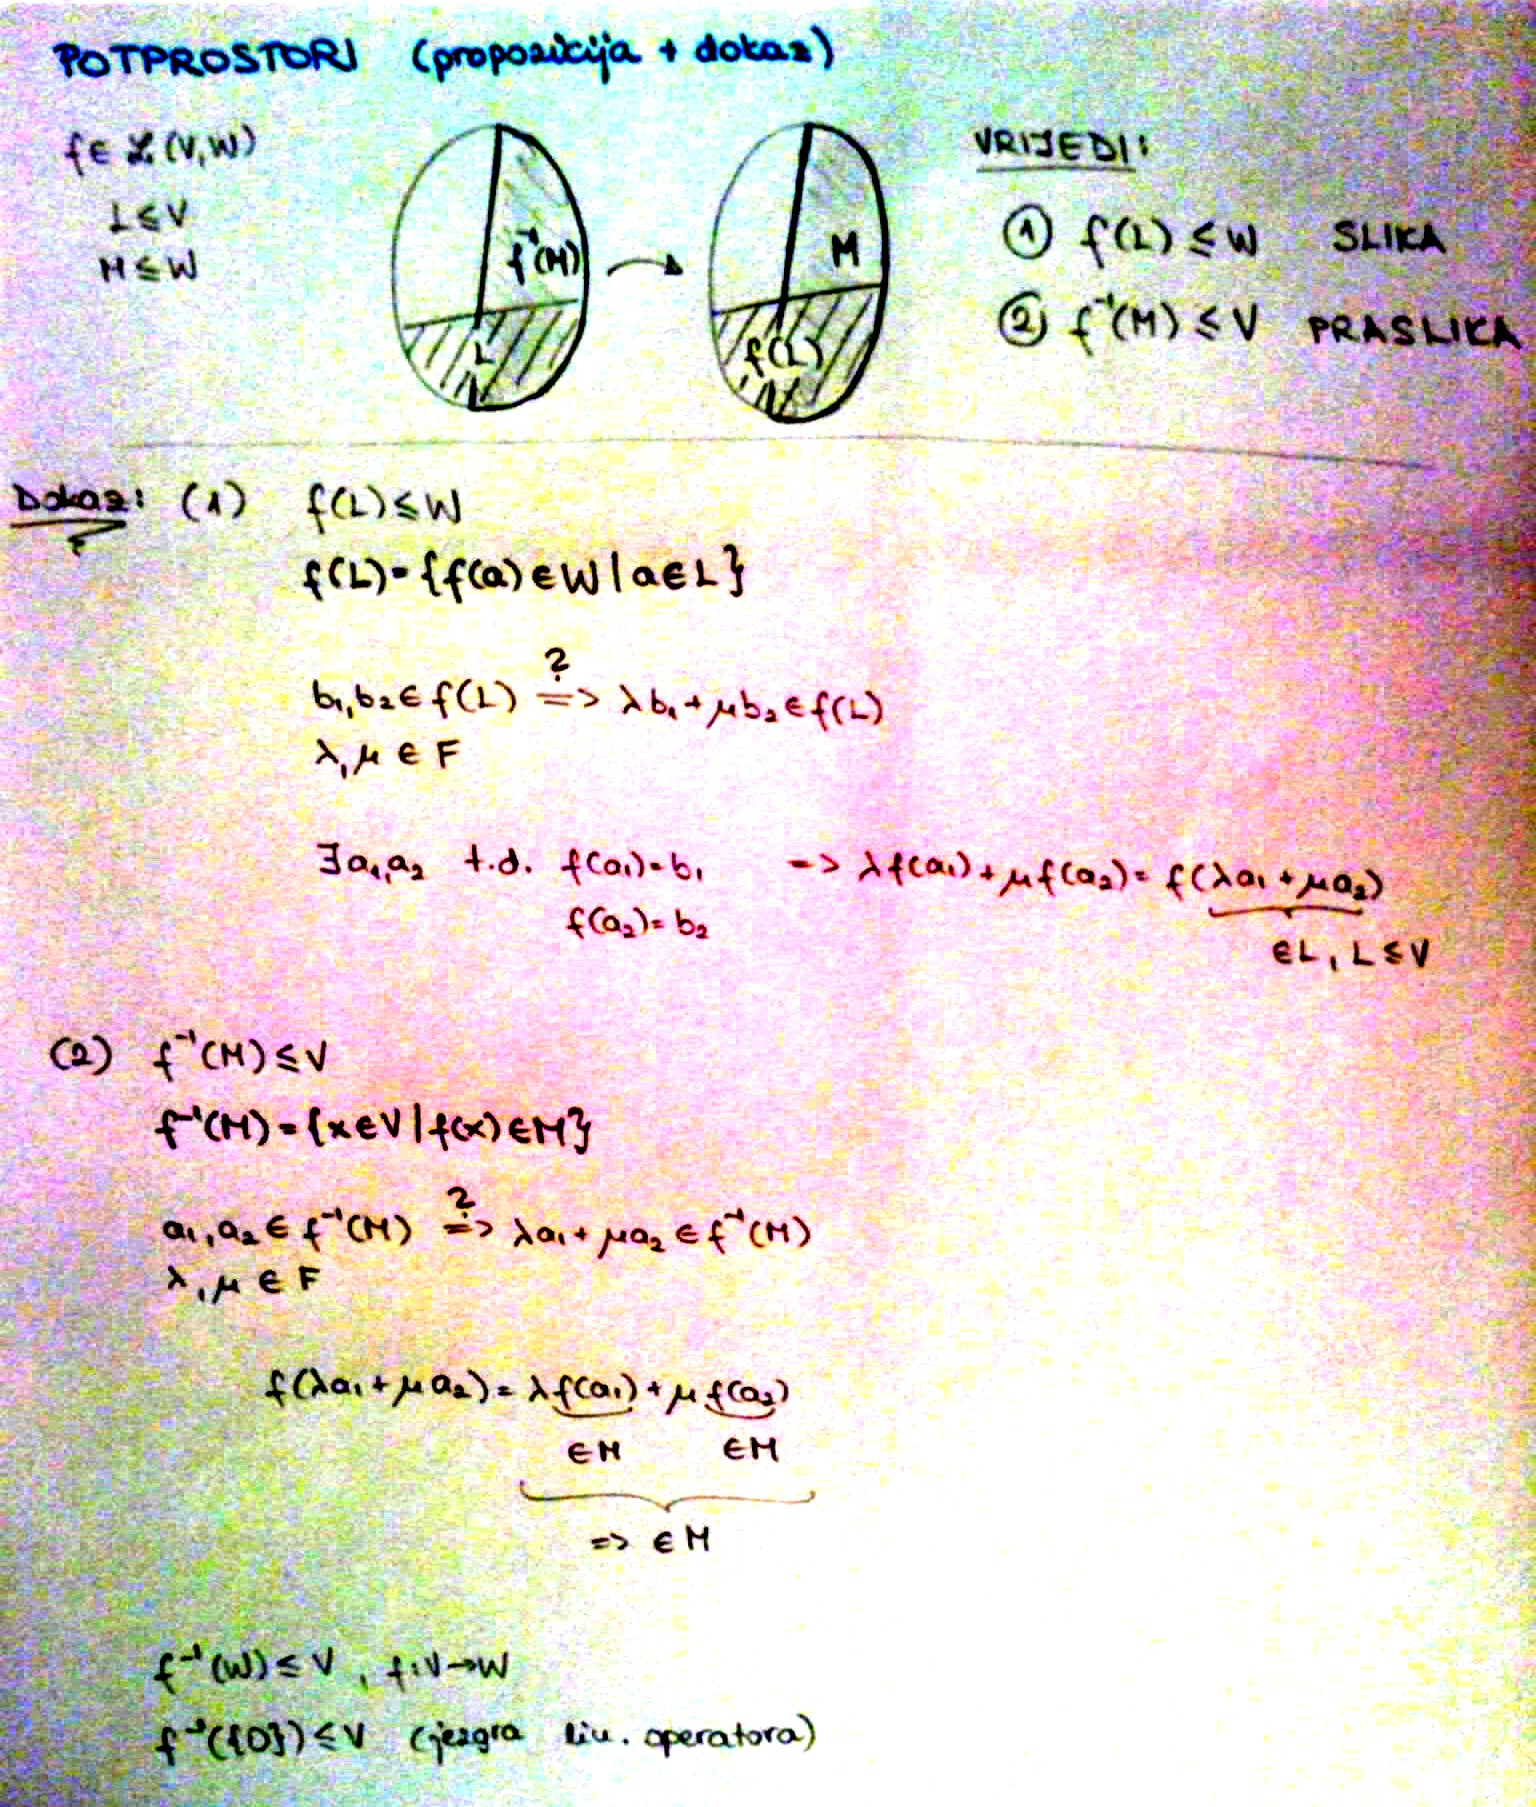 POTPROSTORI (propozicija + dokaz)
f ∈ ℒ(V,W)
L ≤ V
M ≤ W
f⁻¹(M)
L
M
f(L)
VRIJEDI:
① f(L) ≤ W SLIKA
② f⁻¹(M) ≤ V PRASLIKA
Dokaz: (1) f(L) ≤ W
f(L) = {f(a) ∈ W | a ∈ L}
b₁, b₂ ∈ f(L) ?=> λb₁ + μb₂ ∈ f(L)
λ, μ ∈ F
∃a₁, a₂ t.d. f(a₁) = b₁ => λf(a₁) + μf(a₂) = f(λa₁ + μa₂)
f(a₂) = b₂
∈ L, L ≤ V
(2) f⁻¹(M) ≤ V
f⁻¹(M) = {x ∈ V | f(x) ∈ M}
a₁, a₂ ∈ f⁻¹(M) ?=> λa₁ + μa₂ ∈ f⁻¹(M)
λ, μ ∈ F
f(λa₁ + μa₂) = λf(a₁) + μf(a₂)
∈ M ∈ M
=> ∈ M
f⁻¹(W) ≤ V, f: V → W
f⁻¹({0}) ≤ V (jezgra lin. operatora)